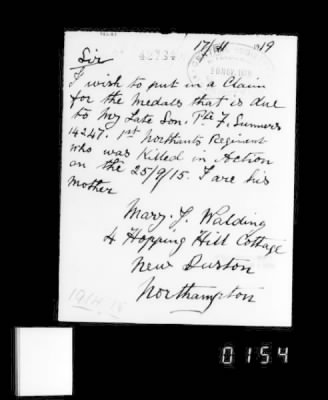 42734
17/11 1919
Sir
I wish to put in a Claim
for the Medals that is due
to my Late Son. Pte F. Summers
14247. 1st Northants Regiment
who was Killed in Action
on the 25/9/15. I are his
Mother
Mary. J. Walding
4 Hopping Hill Cottage
New Duston
Northampton
1914-15
0154